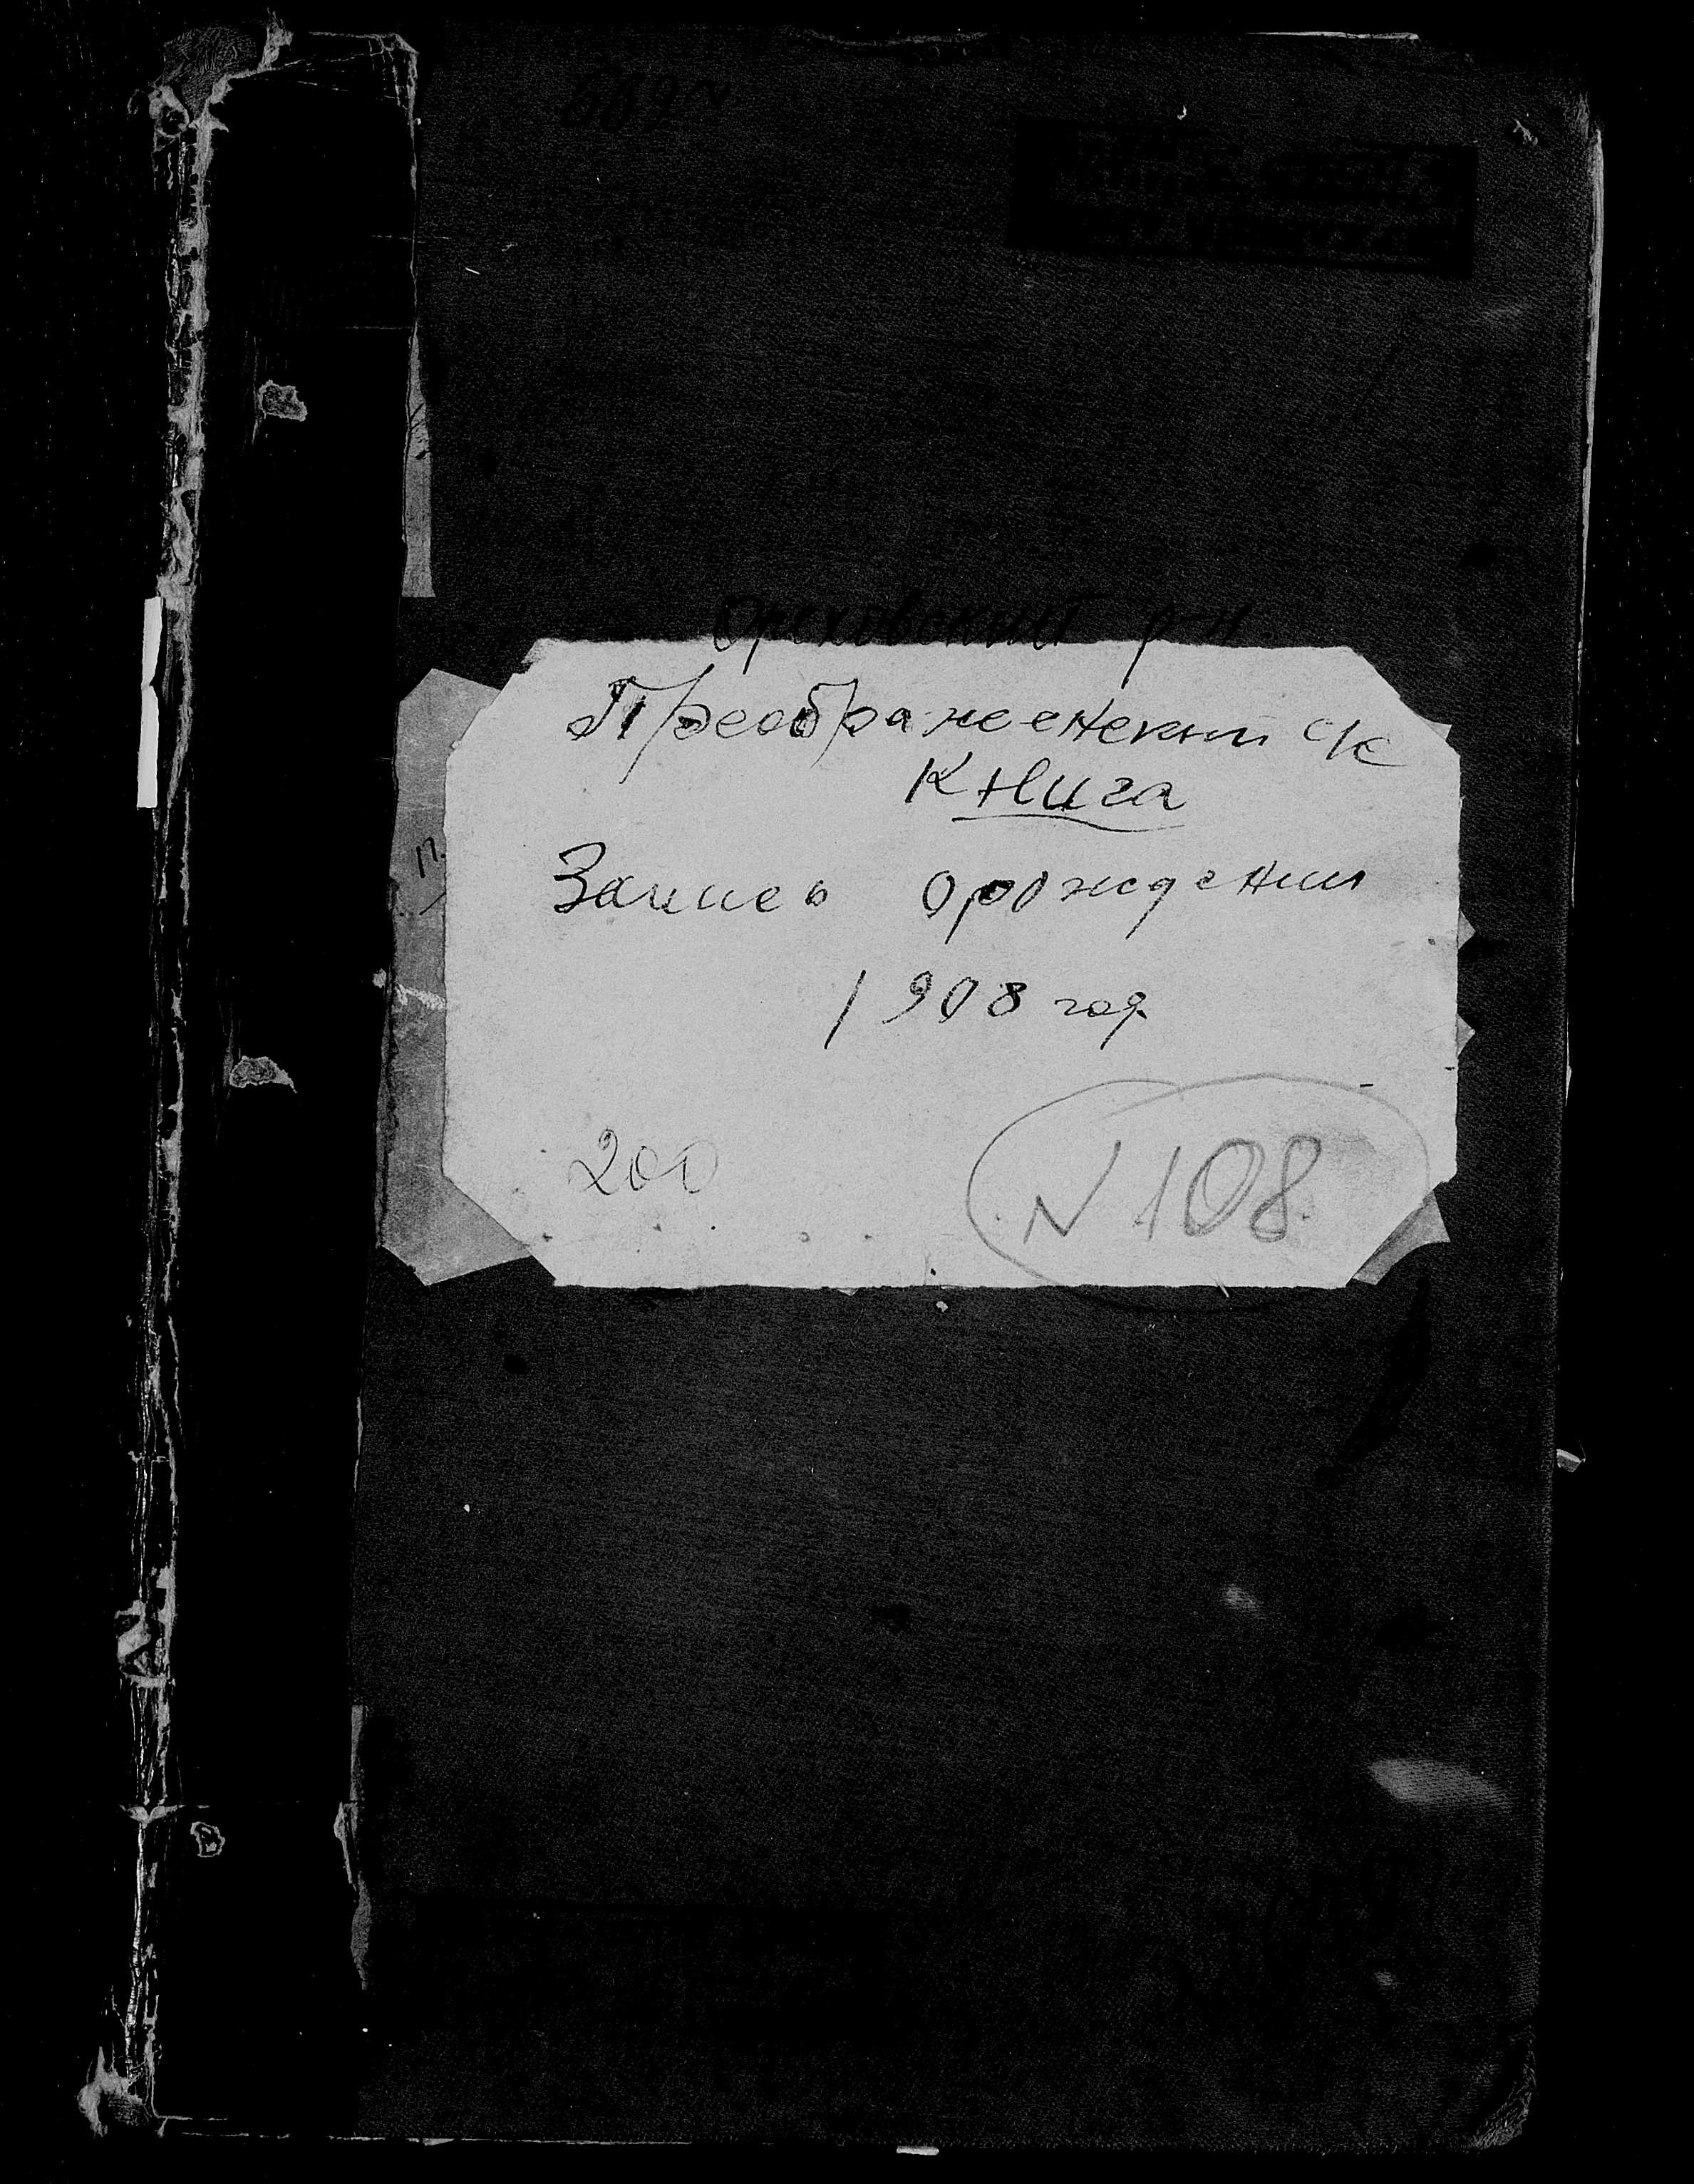 Ореховский р-н.
Преображенский с/с
Книга
Запись о рождении
1908 год.
200
N 108